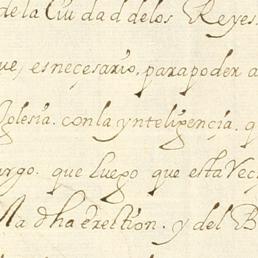 de la Ciudad delos Reyes.
ue, es necesario, para poder a
Iglesia. con la ynteligencia, q
argo. que Luego que esta Vec
dha erection. y del B